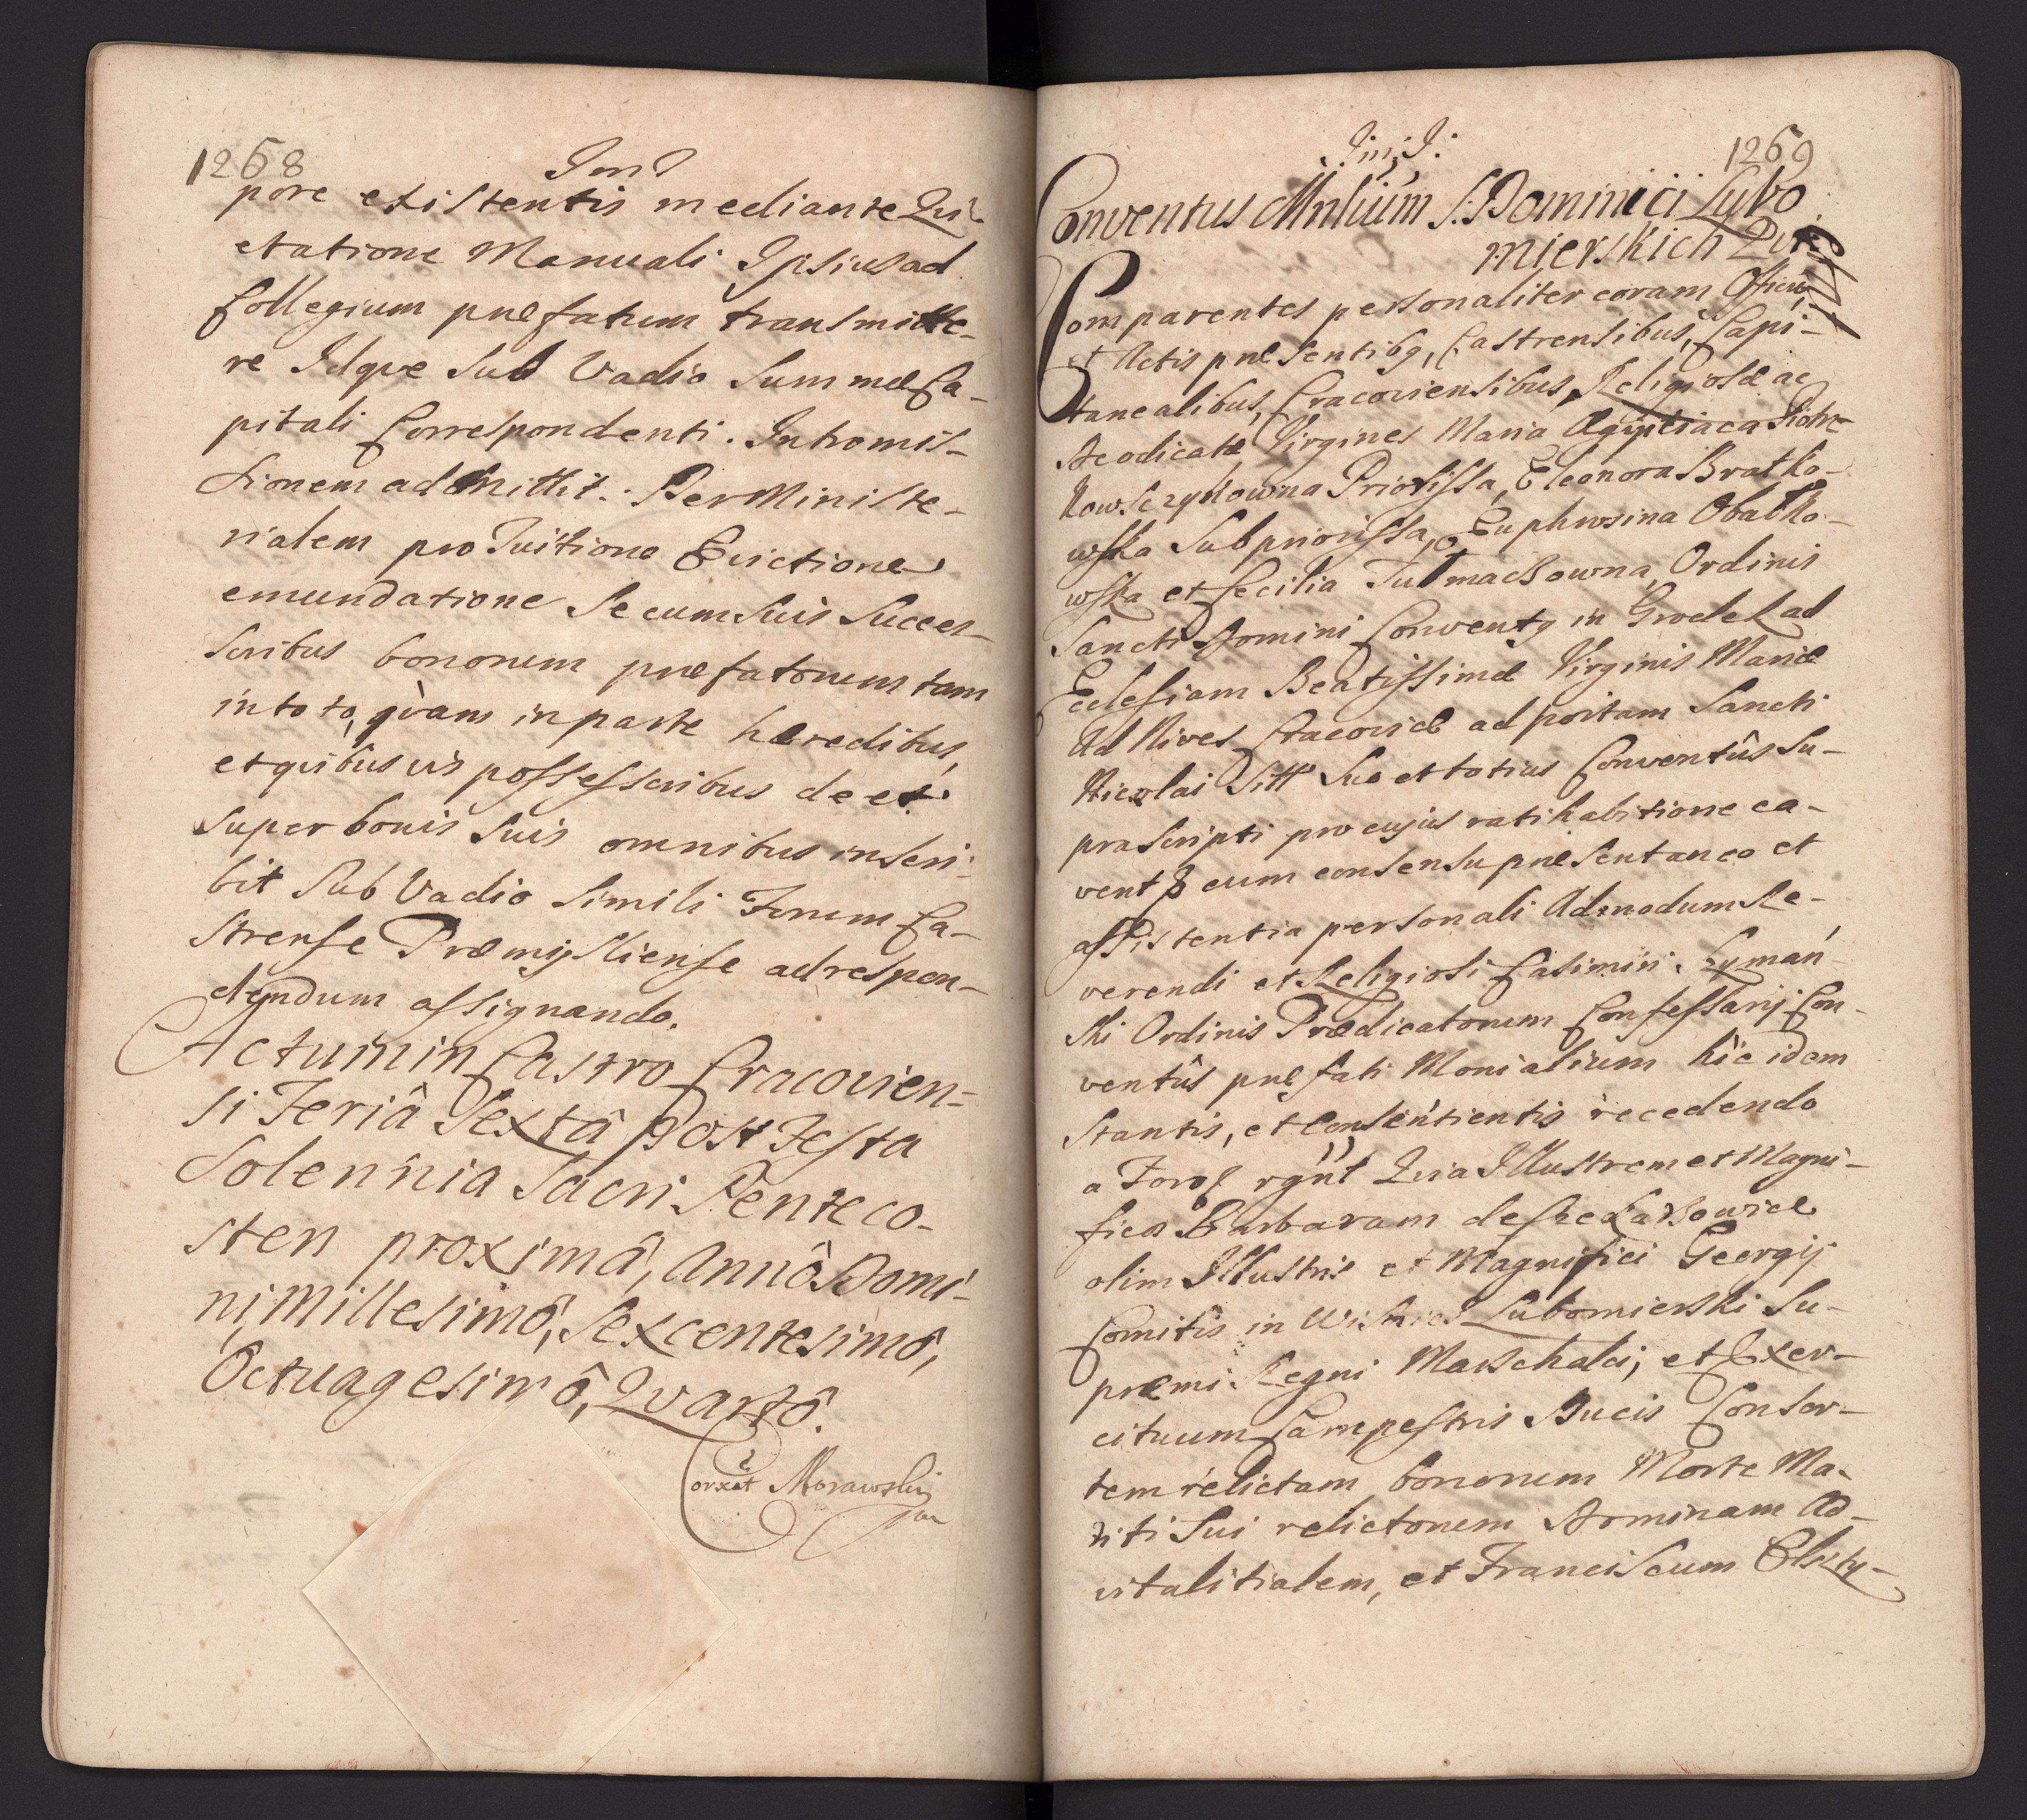 1268
pore existentis mediante Qui-
etatione Manuali Ipsius ad
Collegium præfatum transmitte-
re Idqve Sub Vadio Summæ Ca-
pitali Correspondenti. Intromis-
sionem admittit. Per Ministe-
rialem pro Tuitione Evictione
emundatione Se cum Suis Succes-
soribus bonorum præfatorum tam
in toto, qvam in parte hæredibus,
et qvibusvis possessoribus de et
Super bonis Suis omnibus inscri-
bit Sub Vadio Simili Forum Ca-
strense Præmysliense ad respon-
dendum assignando.
Actum in Castro Cracovien-
si Feriâ Sextâ Post Festa
Solennia Sacri Penteco-
sten proximâ, Annô Domi-
ni Millesimô, Sexcentesimô,
Octuagesimô, Qvartô.
Corxit Morawski
1269
Conventus Mnlium S. Dominici Lubo
mierskich Qvit
Comparentes personaliter coram Officio
et Actis præsentibq, Castrensibus, Capi-
tanealibus, Cracoviensibus, Religiosæ ac
Deodicatæ Virgines Maria Ægyptiaca Piotr-
kowsczykowna Priorissa, Eleonora Bratko-
wska Subpriorissa, Euphrosina Obatko-
wska et Cecilia Tulmackowna, Ordinis
Sancti Domini Conventq in Grodek ad
Ecclesiam Beatissimæ Virginis Mariæ
Ad Nives Cracoviæ ad portam Sancti
Nicolai Sitt Suo et totius Conventûs Su-
prascripti pro cujus ratihabitione ca-
vent cum consensu præsentaneo et
assistentia personali Admodum Re-
verendi et Religiosi Casimiri Lyman-
ski Ordinis Prædicatorum Confessarij Con-
ventûs præfati Monialium hic idem
Stantis, et Consentientis recedendo
a Foro rgnt Qvia Illustrem et Magni-
ficā Barbaram de
olim Illustris et Magnifici Georgij
Comitis in Wisnicz Lubomierski Su-
præmi Regni Marschalci, et Exer-
cituum Campestris Ducis Consor-
tem relictam bonorum Morte Ma-
riti Sui relictorum Dominam Ad-
vitalitialem, et Franciscum